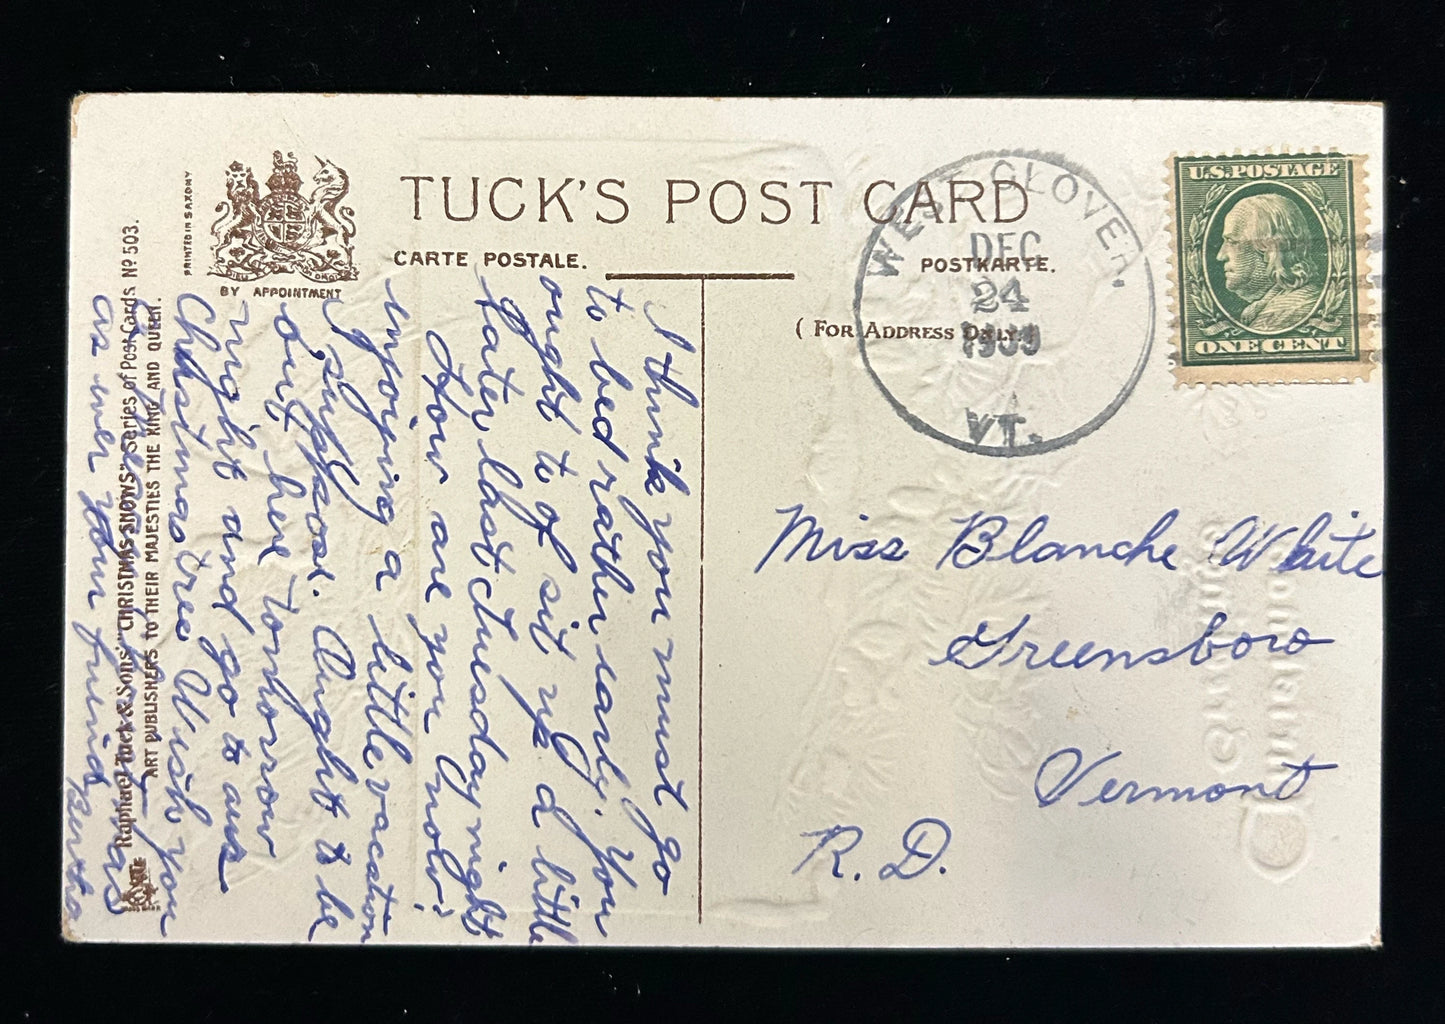 TUCK'S POST CARD
CARTE POSTALE.
POSTKARTE.
(FOR ADDRESS ONLY.
BY APPOINTMENT
PRINTED IN SAXONY
Raphael Tuck & Sons' "CHRISTMAS SNOWS" Series of Post Cards Nº 503.
ART PUBLISHERS TO THEIR MAJESTIES THE KING AND QUEEN.
WEST GLOVER.
DEC
24
1909
VT.
U.S. POSTAGE
ONE CENT
Miss Blanche White
Greensboro
Vermont
R. D.
I think you must go
to bed rather early. You
ought to of sit up a little
later last tuesday night
How are you now?
enjoying a little vacation
I suppose. Aught to be
out here tomorrow
night and go to our
Christmas tree Wish you
as ever your friend Bertha